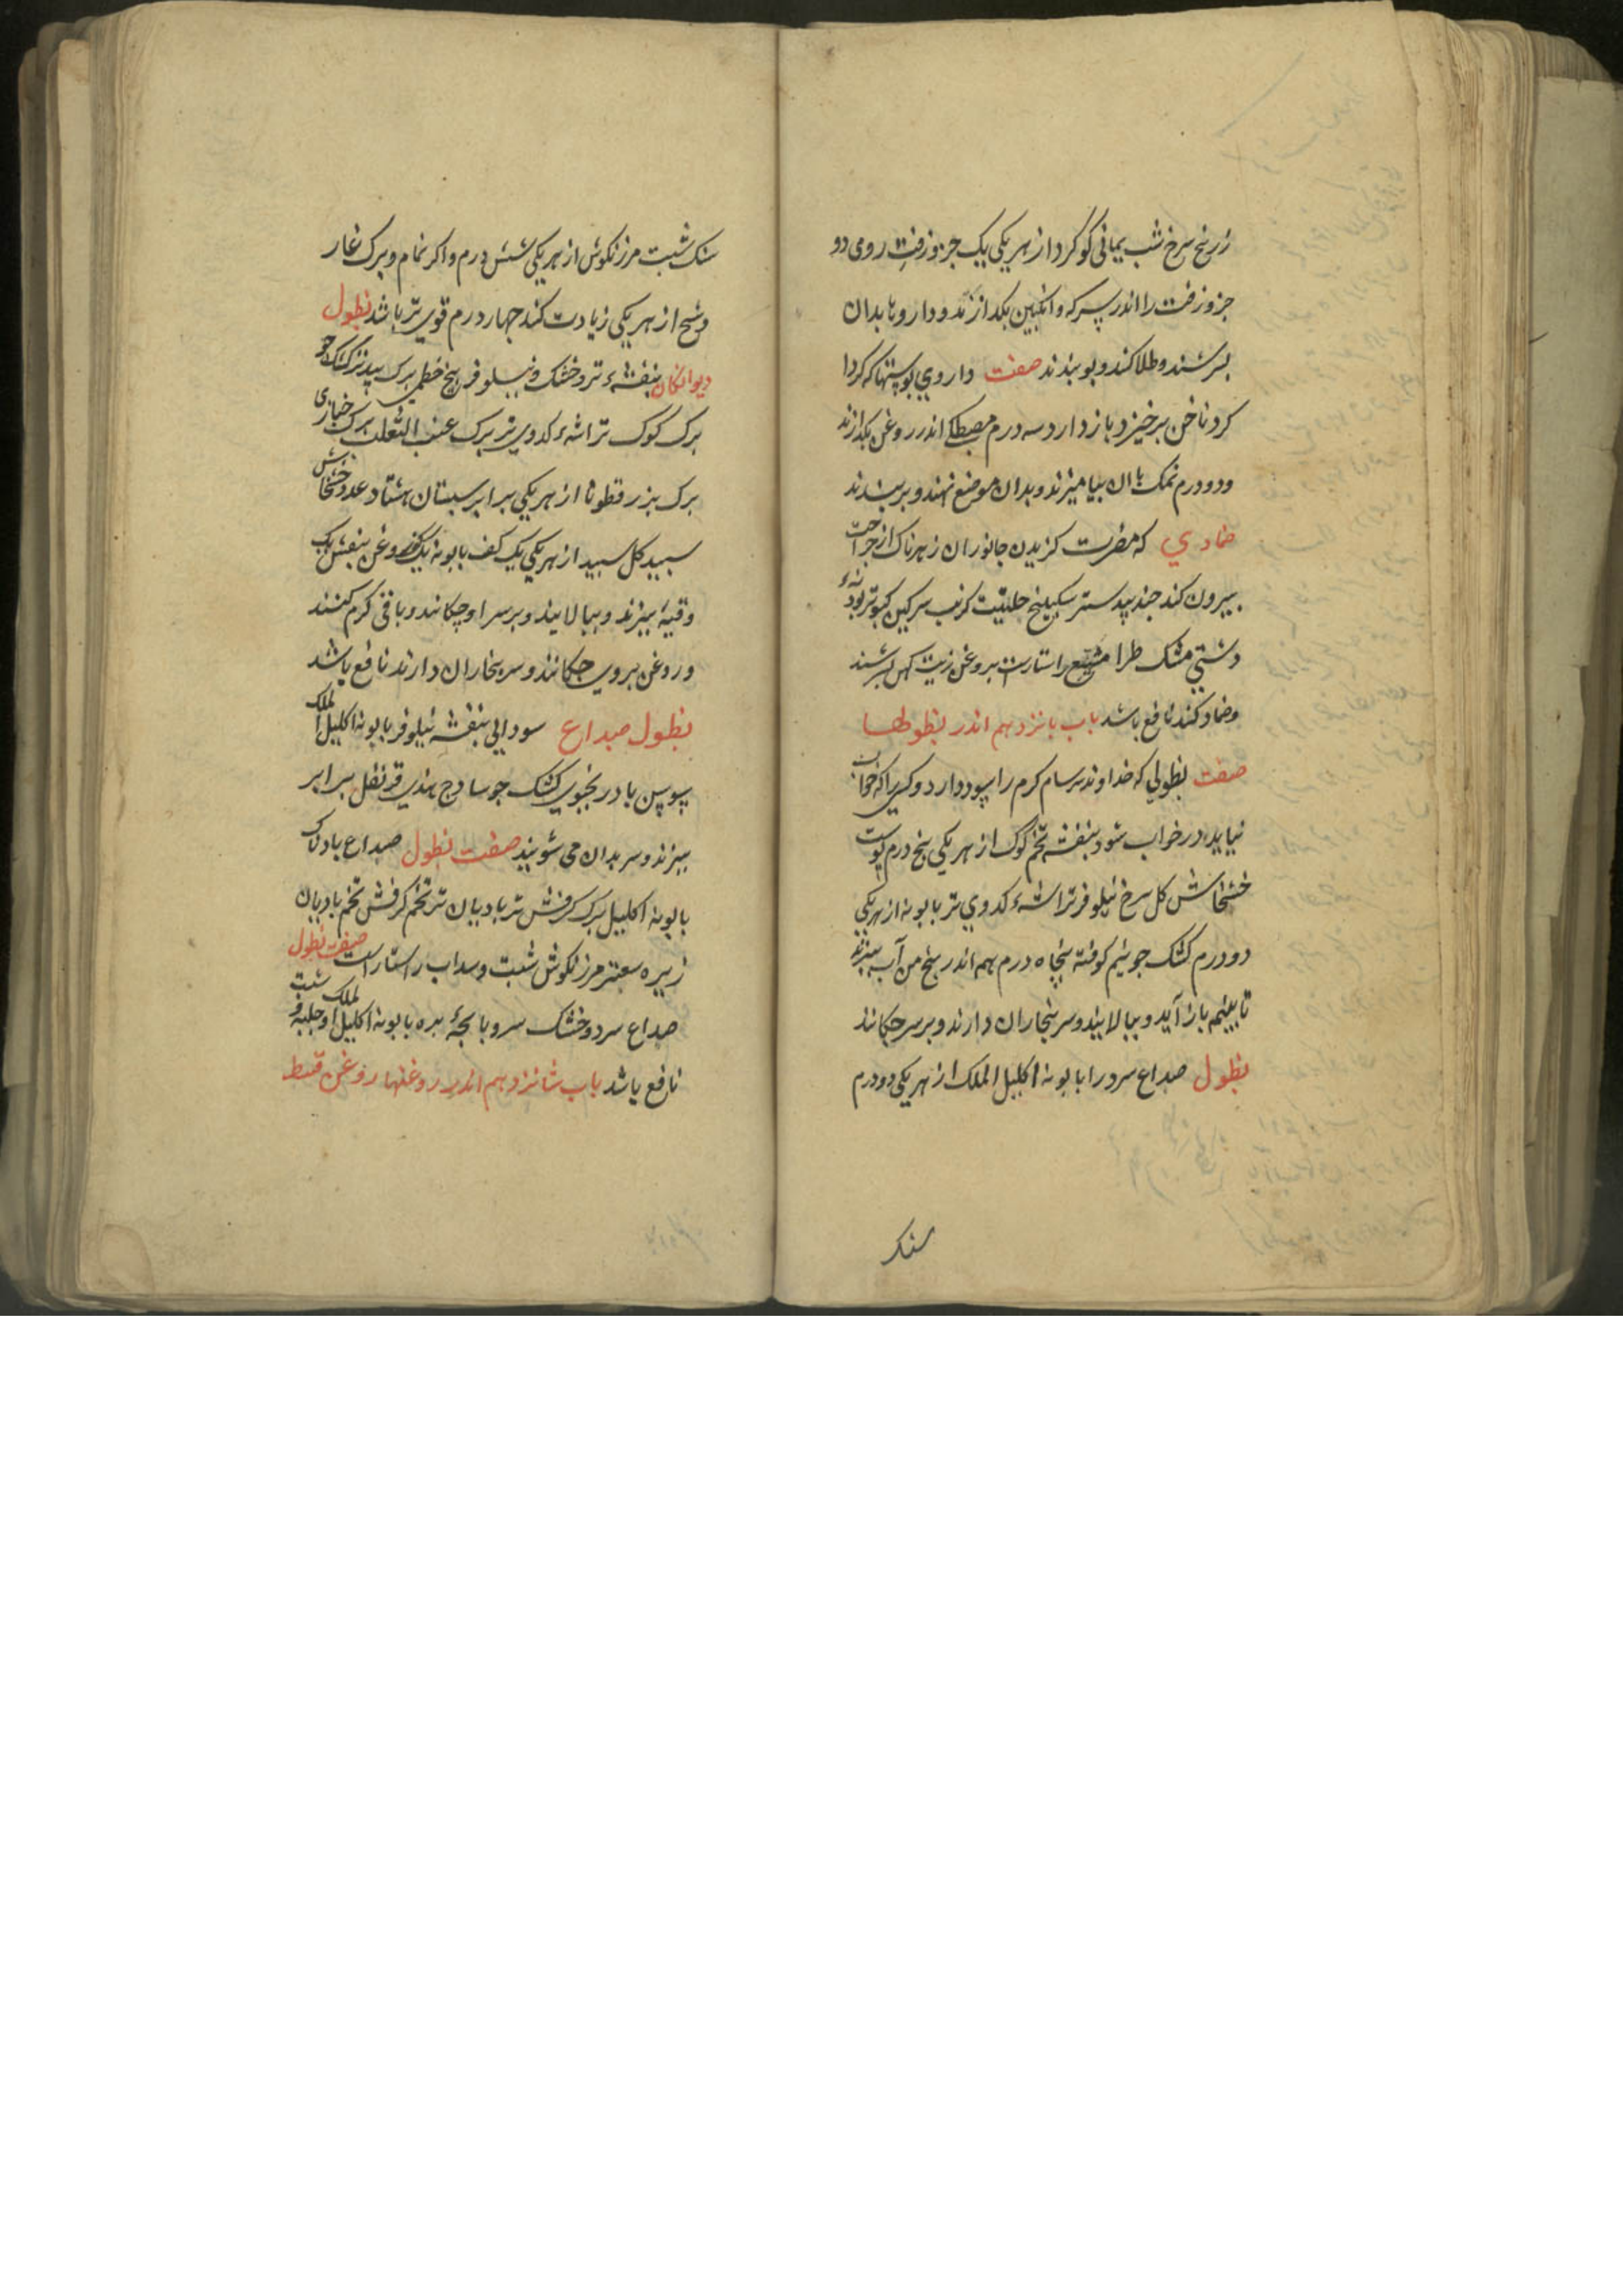 زرنیخ سرخ شب یمانی کوکرد از هر یکی یک جزو زفت رومی دو
جزو زفت را اندر سرکه و انکبین بکدازند و داروها بدان
بسرشند و طلا کنند و بوبندند صفت داروی پوستها که کردا
کرد ناخن برخیزد باز دارد سه درم مصطکی اندر روغن بکدازند
و دو درم نمک با ان بیامیزند و بدان موضع نهند و بربندند
ضمادی که مضرت کزیدن جانوران زهرناک از جراحت
بیرون کند جندبیدستر سکبینج حلتیت کرنب سرکین کبوتر پودنهٔ
دشتی مشک طرامشیع راستاراست بروغن زیت کهن بسرشند
و ضماد کنند نافع باشد باب پانزدهم اندر نطولها
صفت نطولی که خداوند سرسام کرم را سود دارد و کسی را که خواب
نیاید در خواب شود بنفشه تخم کوک از هر یکی پنج درم پوست
خشخاش کل سرخ نیلوفر تراشهٔ کدوی تر بابونه از هر یکی
دو درم کشک جو نیم کوفته پنجاه درم همه اندر پنج من آب بپزند
تا بنیمه باز آید و بپالایند و سر ببخاران دارند و بر سر چکانند
نطول صداع سرد را بابونه اکلیل الملک از هر یکی دو درم
سنک
سنک شبت مرزنکوش از هر یکی شش درم و اکر نمام و برک غار
و شیح از هر یکی زیادت کنند جهار درم قوی تر باشد نطول
دیوانکان بنفشهٔ تر و خشک و نیلوفر بیخ خطمی برک بید تر کشک جو
برک کوک تراشهٔ کدوی تر برک عنب الثعلب برک خبازی
برک بزرقطونا از هر یکی برابر سبستان هشتاد عدد خشخاش
سبید کل سبید از هر یکی یک کف بابونه یک کف روغن بنفش یک
وقیه بپزند و بپالایند و بر سر او چکانند و باقی کرم کنند
و روغن بروی چکانند و سر ببخار ان دارند نافع باشد
نطول صداع سودایی بنفشه نیلوفر بابونه اکلیل الملک
سوسن بادرنجبوی کشک جو سادج هندی قرنفل برابر
ببزند و سر بدان می شویند صفت نطول صداع بادناک
بابونه اکلیل برک کرفش تر بادیان تر تخم کرفش تخم بادیان
زیره سعتر مرزنکوش شبت و سداب راستاراست صفت نطول
صداع سرد و خشک سر و پایجهٔ بره بابونه اکلیل الملک شبت و حلبه
نافع باشد باب شانزدهم اندر روغنها روغن قسط